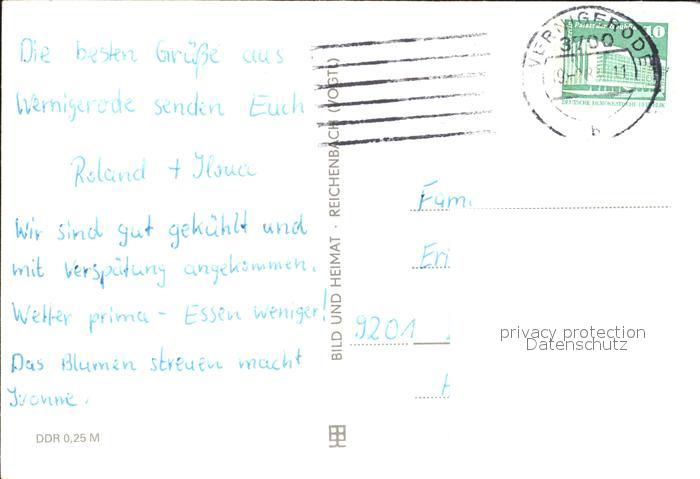 Die besten Grüße aus
Wernigerode senden Euch
Roland + Ilona
Wir sind gut gekühlt und
mit Verspätung angekommen.
Wetter prima - Essen weniger!
Das Blumen streuen macht
Ivonne.
DDR 0,25 M
BILD UND HEIMAT · REICHENBACH (VOGTL)
WERNIGERODE
3700
11
b
10
DEUTSCHE DEMOKRATISCHE REPUBLIK
Fami
Eri
9201
privacy protection
Datenschutz